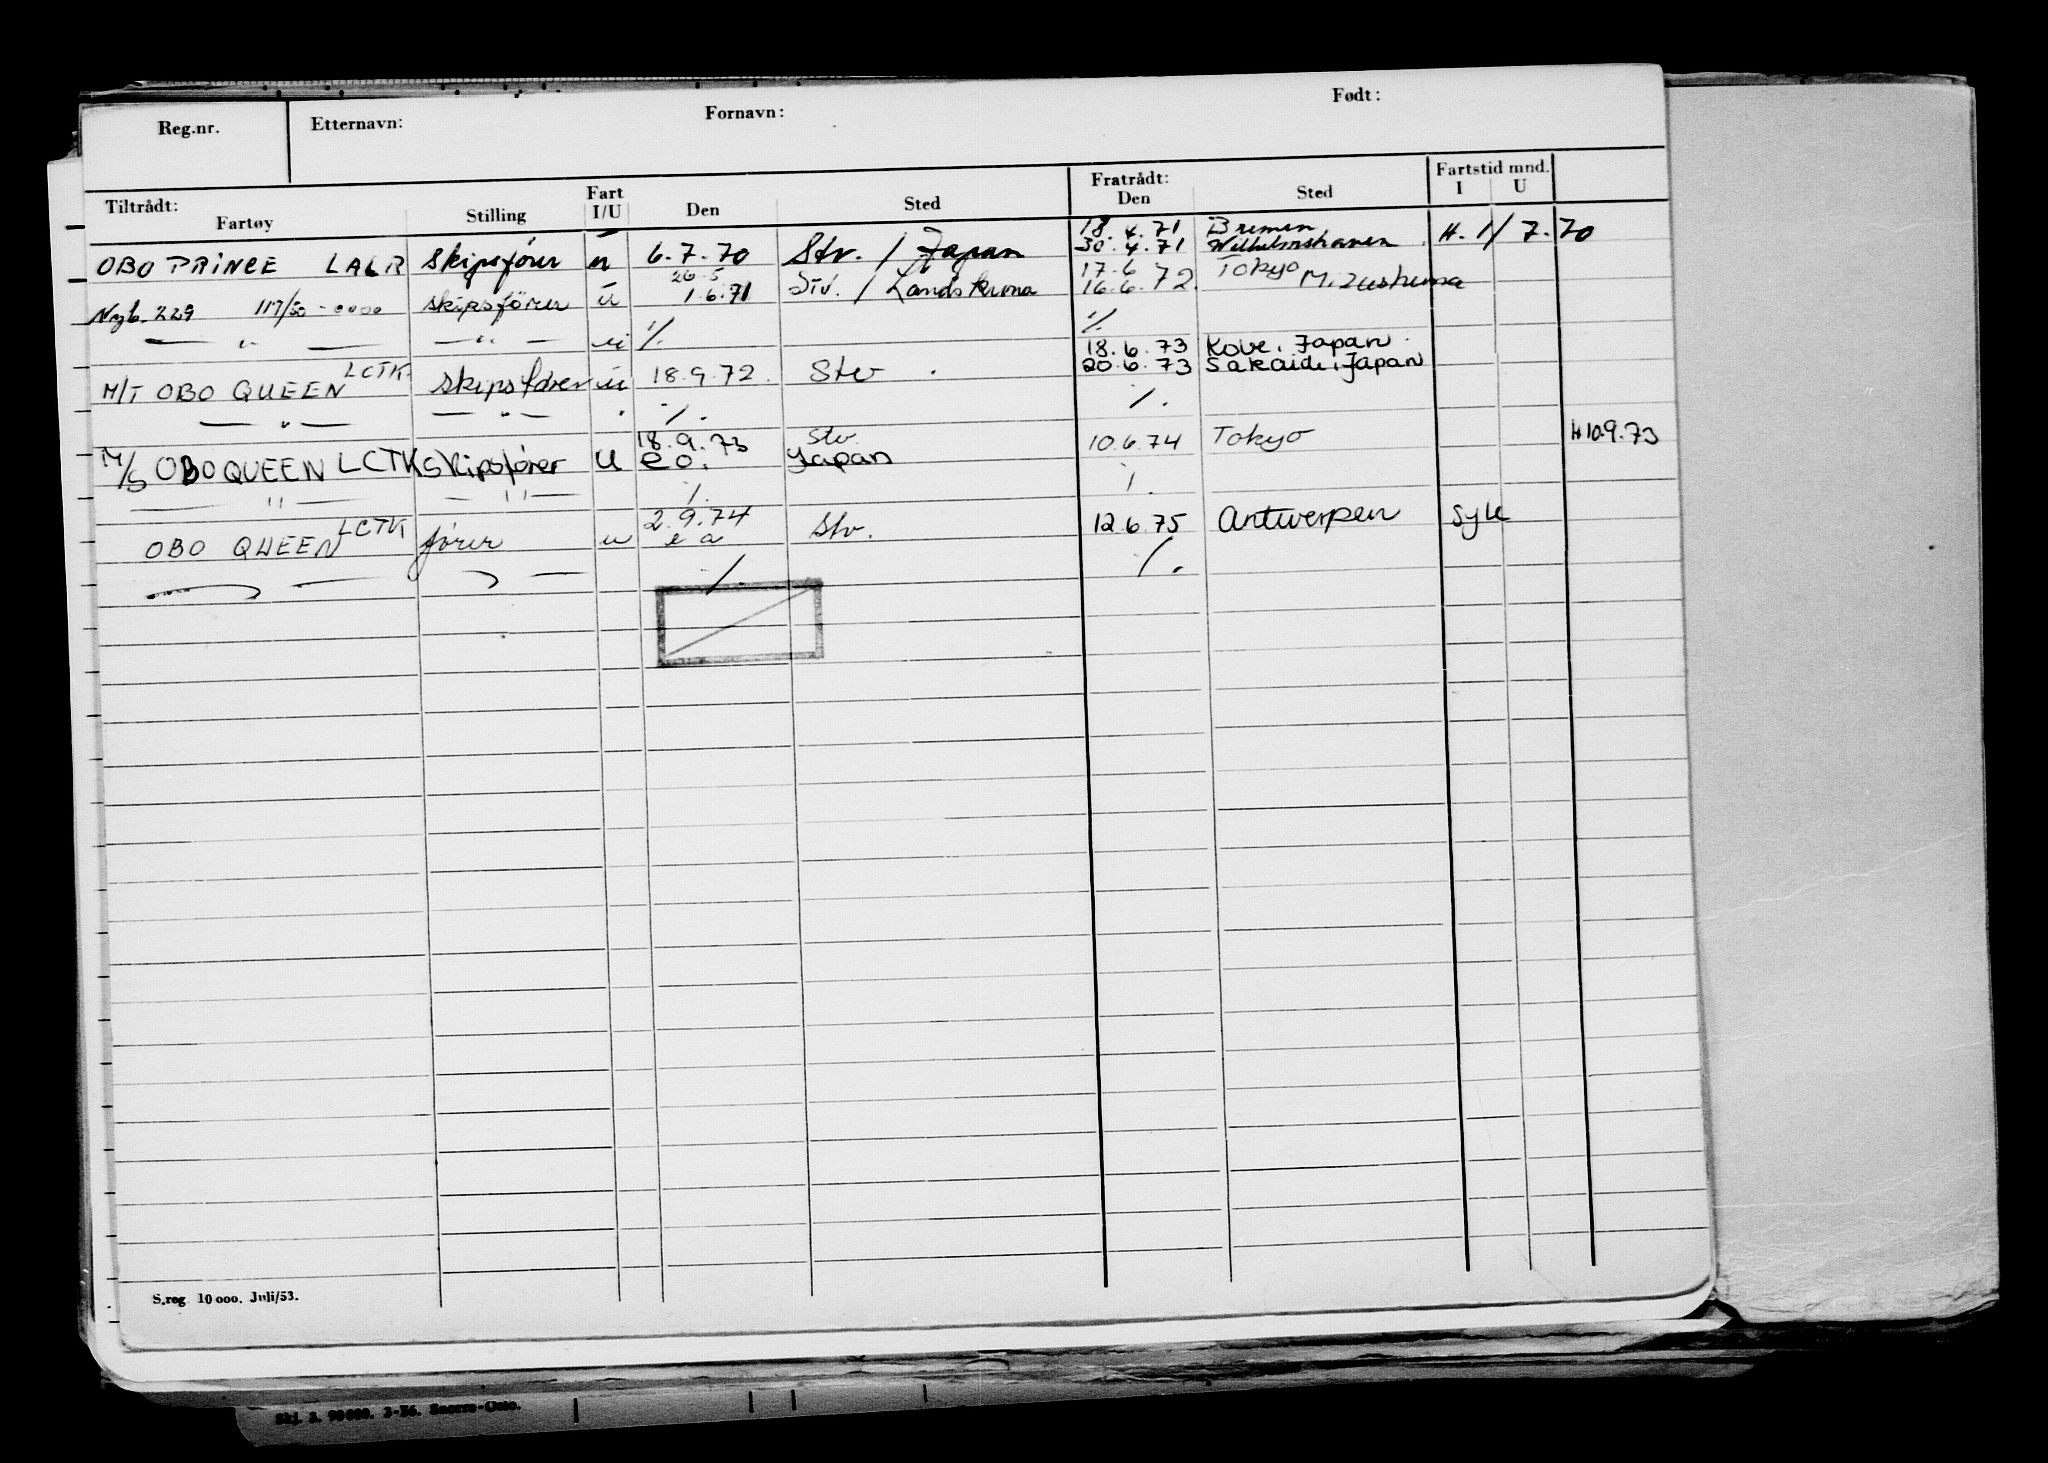 Reg.nr. Etternavn: Fornavn: Født:
Tiltrådt: Fratrådt: Fartstid mnd.
Fartøy Stilling Fart I/U Den Sted Den Sted I U
18.4.71 Bremen
OBO PRINCE LALR skipsfører u 6.7.70 Stv. / Japan 30.4.71 Wilhelmshaven H. 1/7.70
26.5 17.6 72 Tokyo
Nyb. 229 117/50 - 0000 skipsfører u 1.6.71 Div. / Landskrona 16.6.72. Mizushima
— " — — " — u /. /.
18.6.73 Kobe, Japan
M/T OBO QUEEN LCTK. skipsfører u 18.9.72. Stv. 20.6.73 Sakaide, Japan
— " — — " — " /. /.
18.9.73 Stv.
M/S OBO QUEEN LCTK skipsfører U e o. Japan 10.6.74 Tokyo H 10.9.73
— " — — " — /. /.
2.9.74
OBO QUEEN LCTK fører u e a Stv. 12.6.75 Antwerpen Syk
/. /.
S.reg 10 000. Juli/53.
Skj. 3. 90 000. 3-56. Snorre-Oslo.